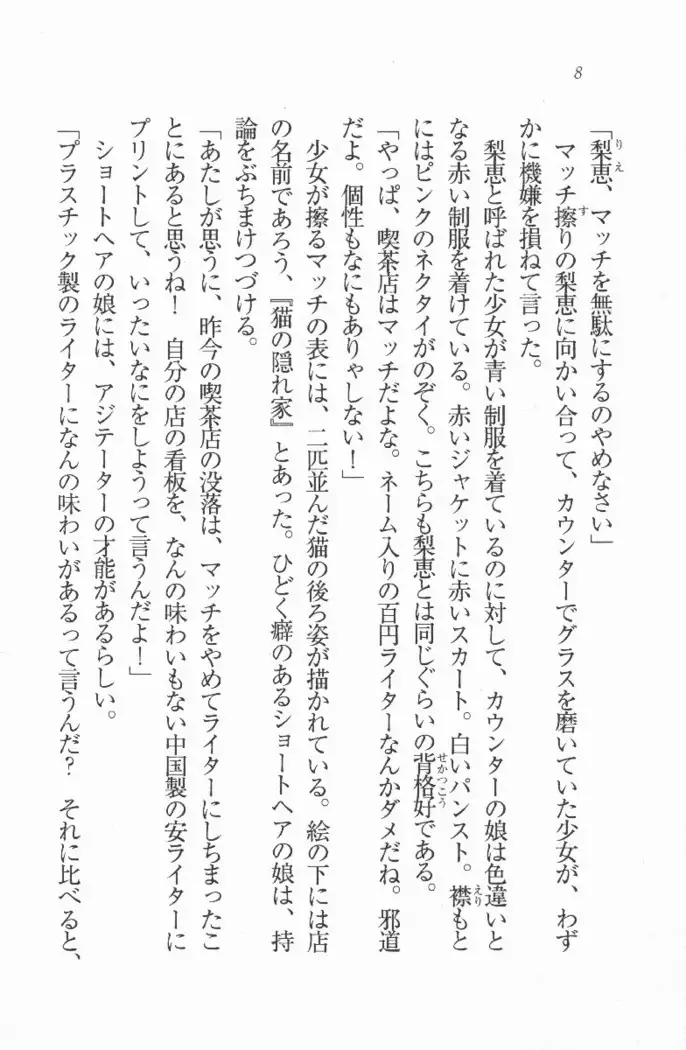 8
「梨恵、マッチを無駄にするのやめなさい」
　マッチ擦りの梨恵に向かい合って、カウンターでグラスを磨いていた少女が、わず
かに機嫌を損ねて言った。
　梨恵と呼ばれた少女が青い制服を着ているのに対して、カウンターの娘は色違いと
なる赤い制服を着けている。赤いジャケットに赤いスカート。白いパンスト。襟もと
にはピンクのネクタイがのぞく。こちらも梨恵とは同じぐらいの背格好である。
「やっぱ、喫茶店はマッチだよな。ネーム入りの百円ライターなんかダメだね。邪道
だよ。個性もなにもありゃしない！」
　少女が擦るマッチの表には、二匹並んだ猫の後ろ姿が描かれている。絵の下には店
の名前であろう、『猫の隠れ家』とあった。ひどく癖のあるショートヘアの娘は、持
論をぶちまけつづける。
「あたしが思うに、昨今の喫茶店の没落は、マッチをやめてライターにしちまったこ
とにあると思うね！　自分の店の看板を、なんの味わいもない中国製の安ライターに
プリントして、いったいなにをしようって言うんだよ！」
　ショートヘアの娘には、アジテーターの才能があるらしい。
「プラスチック製のライターになんの味わいがあるって言うんだ？　それに比べると、